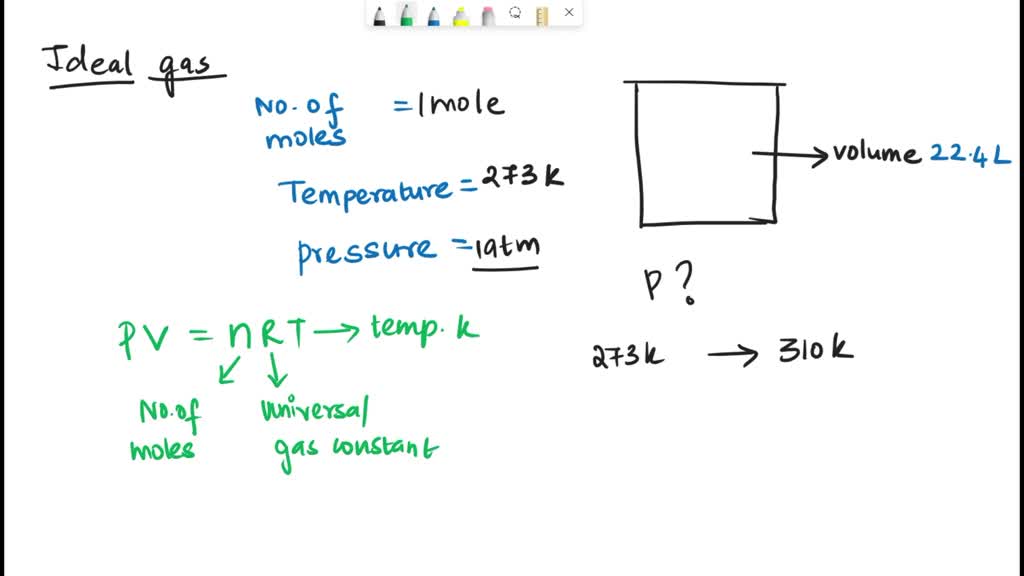 Ideal gas
No. of moles = 1 mole
Temperature = 273 k
pressure = 1atm
volume 22.4 L
P?
273k → 310k
PV = nRT → temp. k
No. of moles
universal gas constant